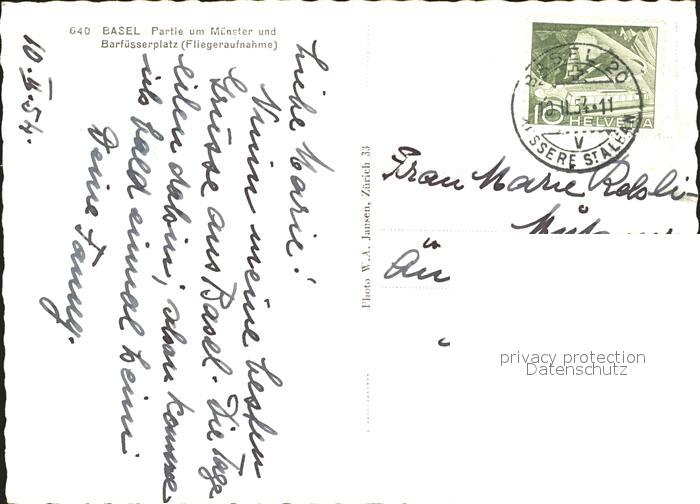 640 BASEL Partie um Münster und
Barfüsserplatz (Fliegeraufnahme)
10. II. 54.
Liebe Marie!
Nimm meine besten
Grüsse aus Basel. Die Tage
eilen dahin, schon komme
ich bald einmal heim
Deine Fanny.
Photo W. A. Jansen, Zürich 33
BASEL 20
10.II.54.-11
V
ÄUSSERE ST. ALBAN
10 HELVETIA
Frau Marie
privacy protection
Datenschutz